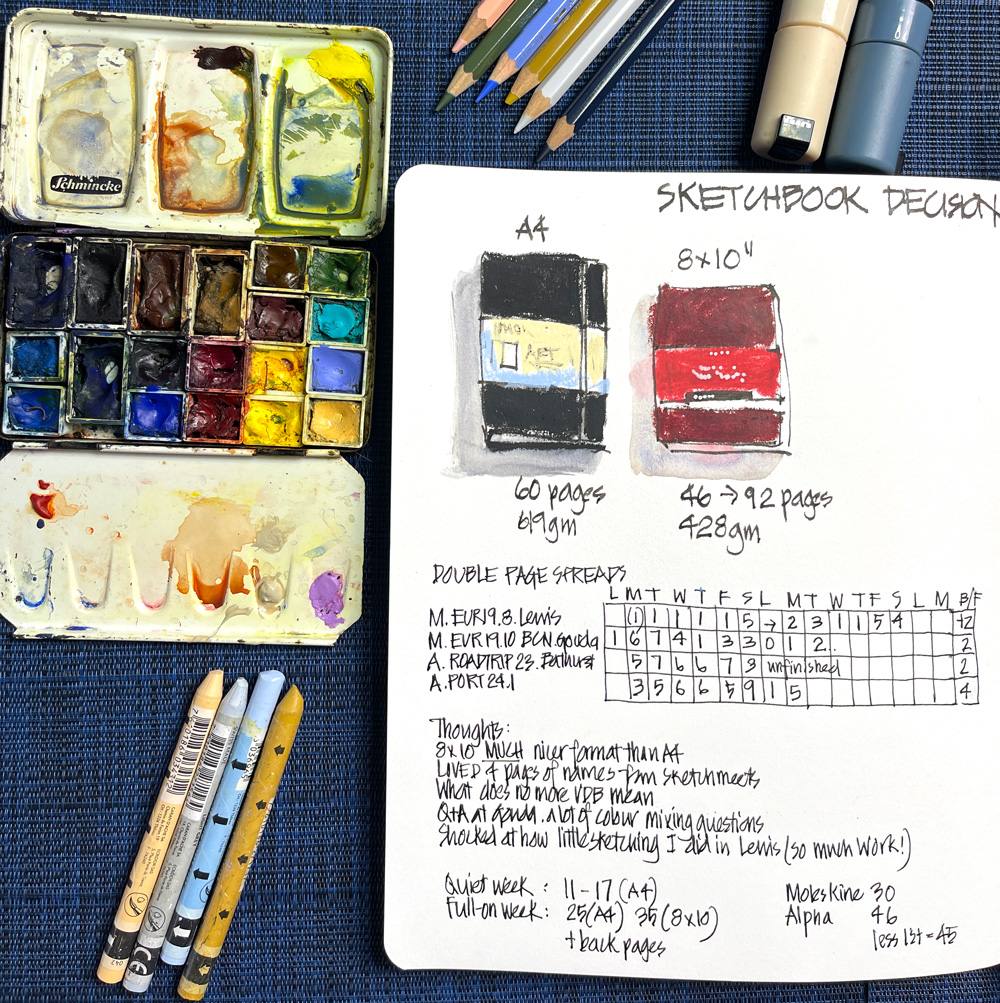 Schmincke
SKETCHBOOK DECISION
A4
8x10"
ART
60 pages
619gm
46 → 92 pages
428gm
DOUBLE PAGE SPREADS
L M T W T F S L M T W T F S L M B/F
M. EUR19.8. Lewis (1) 1 1 1 1 1 5 → 2 3 1 1 5 4 +2
M. EUR19.10 BCN. Gouda 1 6 7 4 1 3 3 0 1 2.. 2
A. ROADTRIP 23. Bathurst 5 7 6 6 7 9 unfinished 2
A. PORT 24.1 3 5 6 6 5 9 1 5 4
Thoughts:
8x10" MUCH nicer format than A4
4 pages of names from sketchmeets
What does no more VDB mean
Q+A at Gouda. a lot of colour mixing questions
Shocked at how little sketching I did in Lewis (so much work!)
Quiet week : 11-17 (A4)
Full-on week : 25 (A4) 35 (8x10)
+ back pages
Moleskine 30
Alpha 46
less 1st = 45
CE